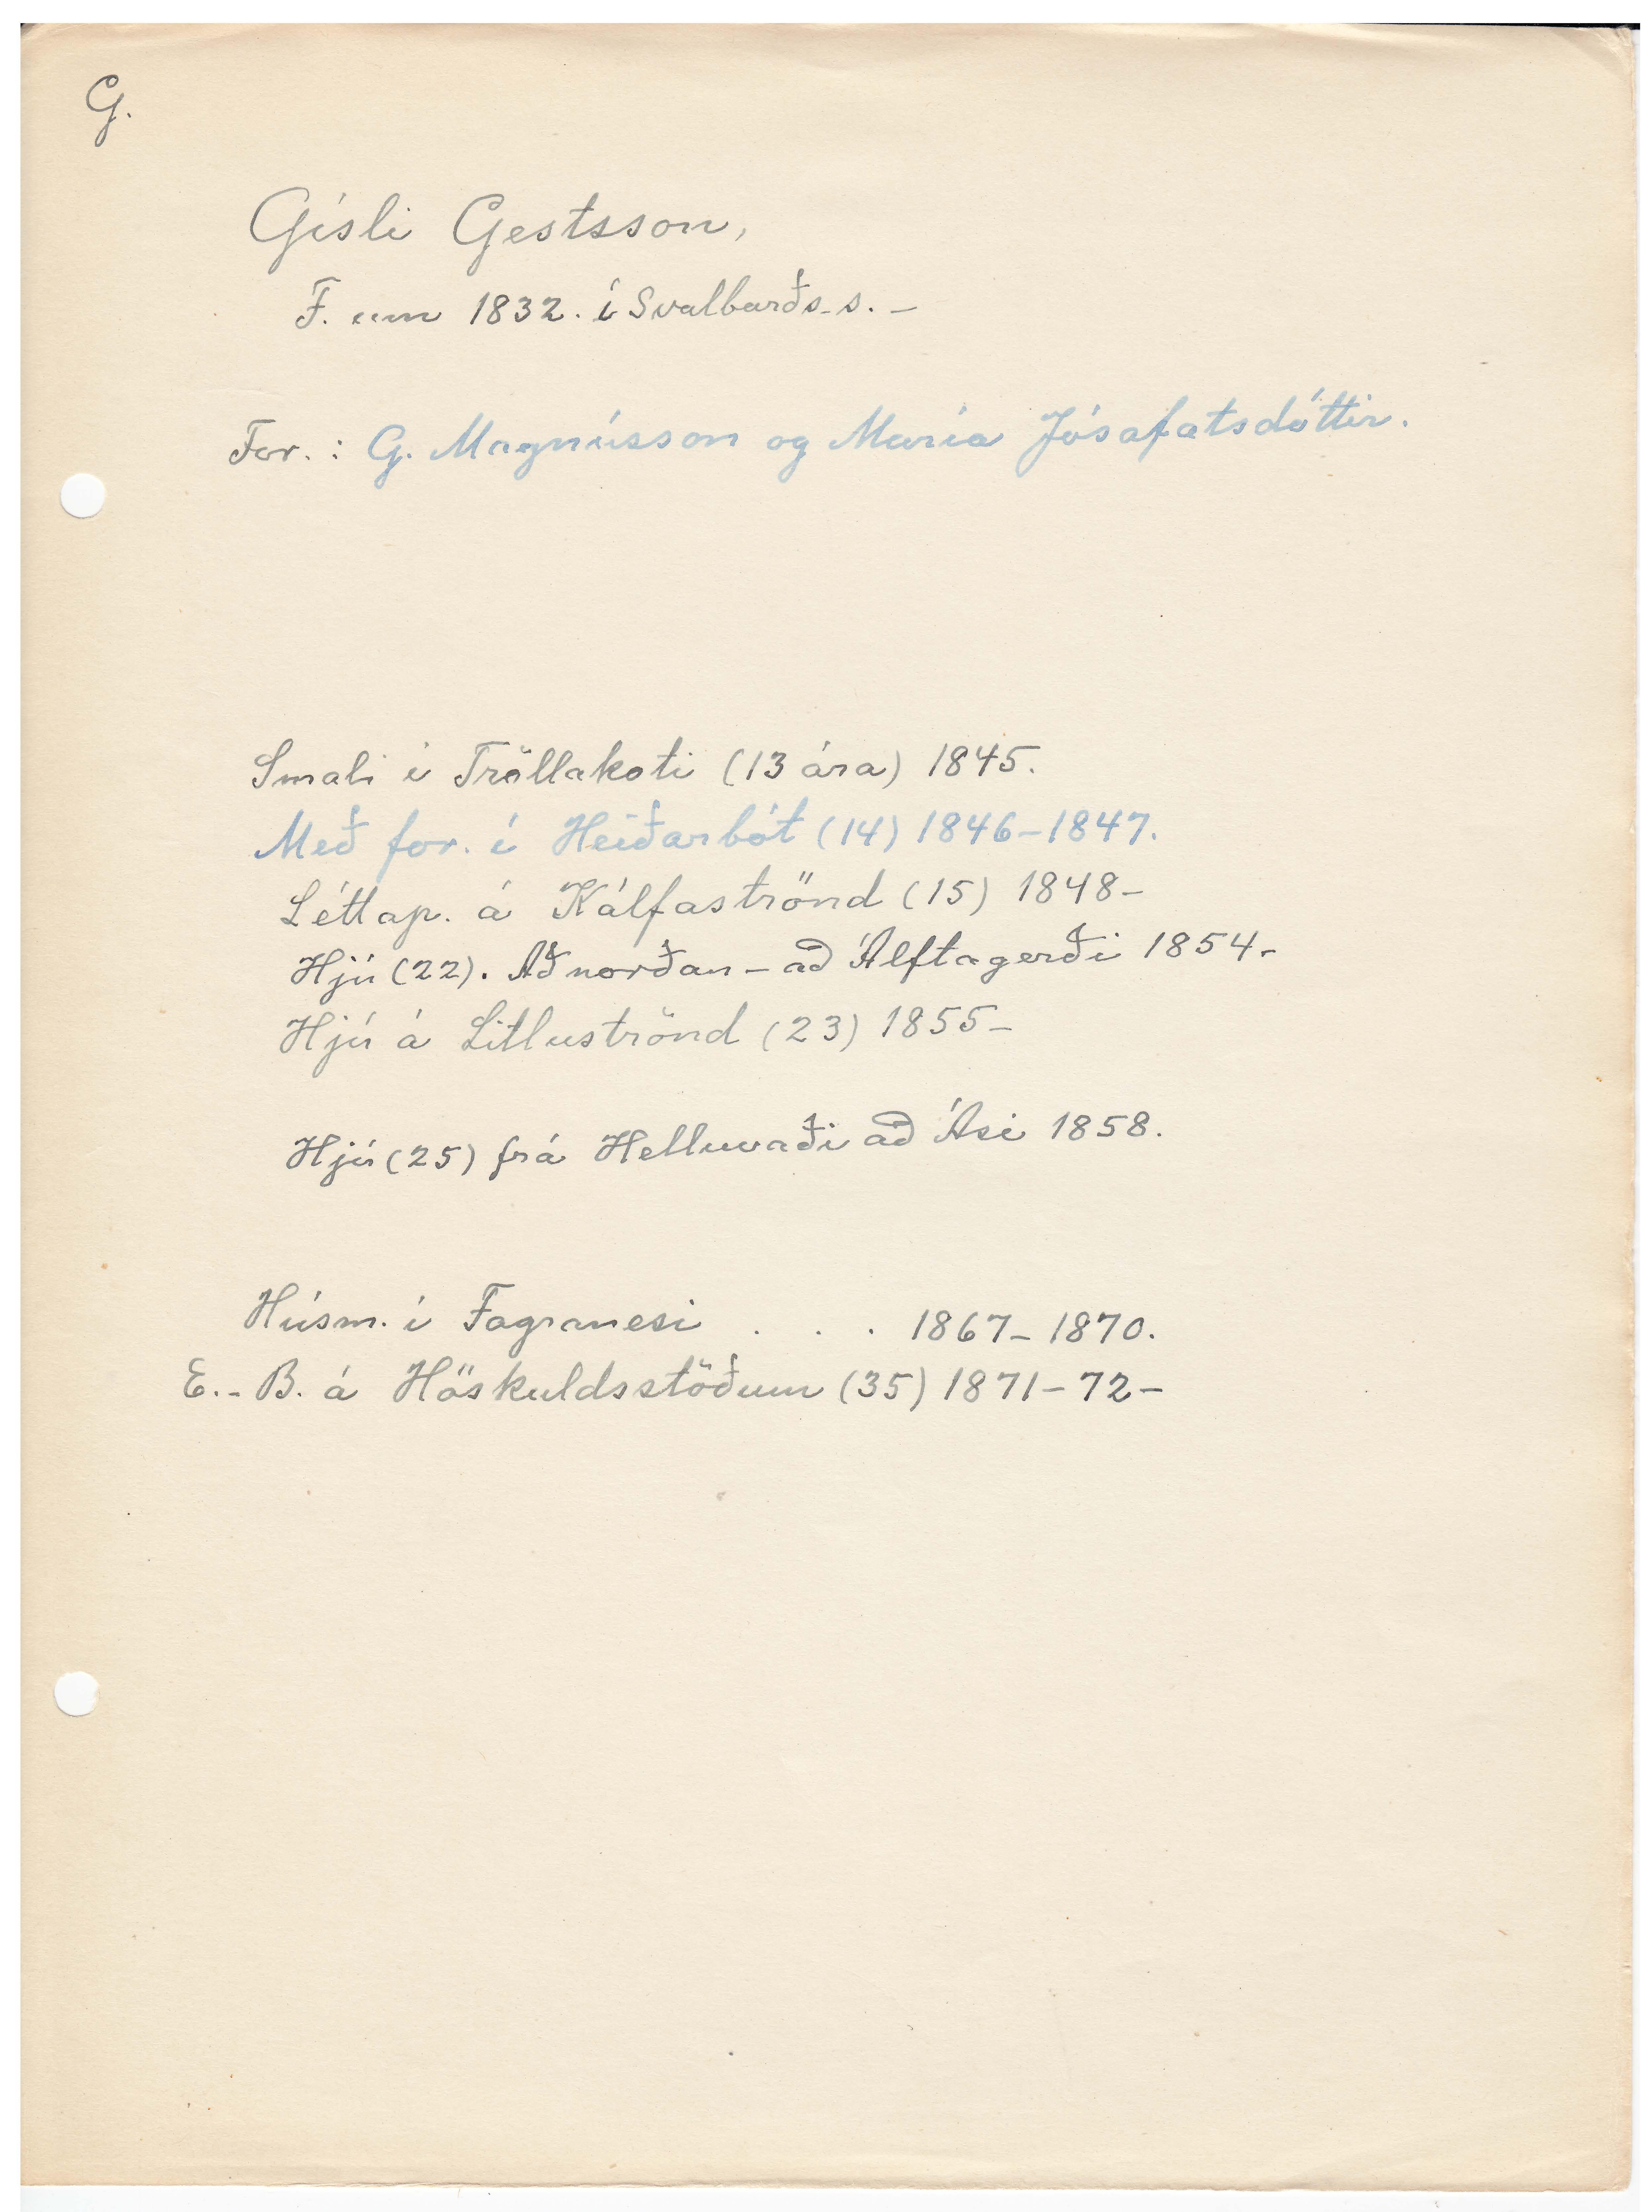 G.
Gísli Gestsson,
F. um 1832. í Svalbarðs-s. -
For. : G. Magnússon og María Jósafatsdóttir.
Smali í Tröllakoti (13 ára) 1845.
Með for. í Heiðarbót (14) 1846-1847.
Léttap. á Kálfaströnd (15) 1848-
Hjú (22). Að norðan - að Álftagerði 1854-
Hjú á Litluströnd (23) 1855-
Hjú (25) frá Helluvaði að Ási 1858.
Húsm. í Fagranesi . . . 1867-1870.
E.- B. á Höskuldsstöðum (35) 1871-72-